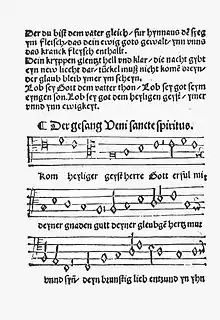 Der du bist dem vater gleich / für hynnaus dē syeg
ym fleisch / das dein ewig gots gewalt / ynn vnns
das kranck fleysch enthallt.
Dein kryppen glentzt hell vnd klar / die nacht gybt
eyn new liecht dar / tūckel muß nicht komē dareyn /
der glaub bleib ymer ym scheyn.
Lob sey Got dem vatter thon / Lob sey got seym
eyngen son. Lob sey got dem heyligen geyst / ymer
vnnd ynn ewigkeyt.
¶ Der gesang Veni sancte spiritus.
Kom heyliger geyst herre Gott erful mit
deyner gnaden gutt deyner gleubgē hertz mut
vnnd syn̄ / deyn brunstig lieb entzund yn yhn